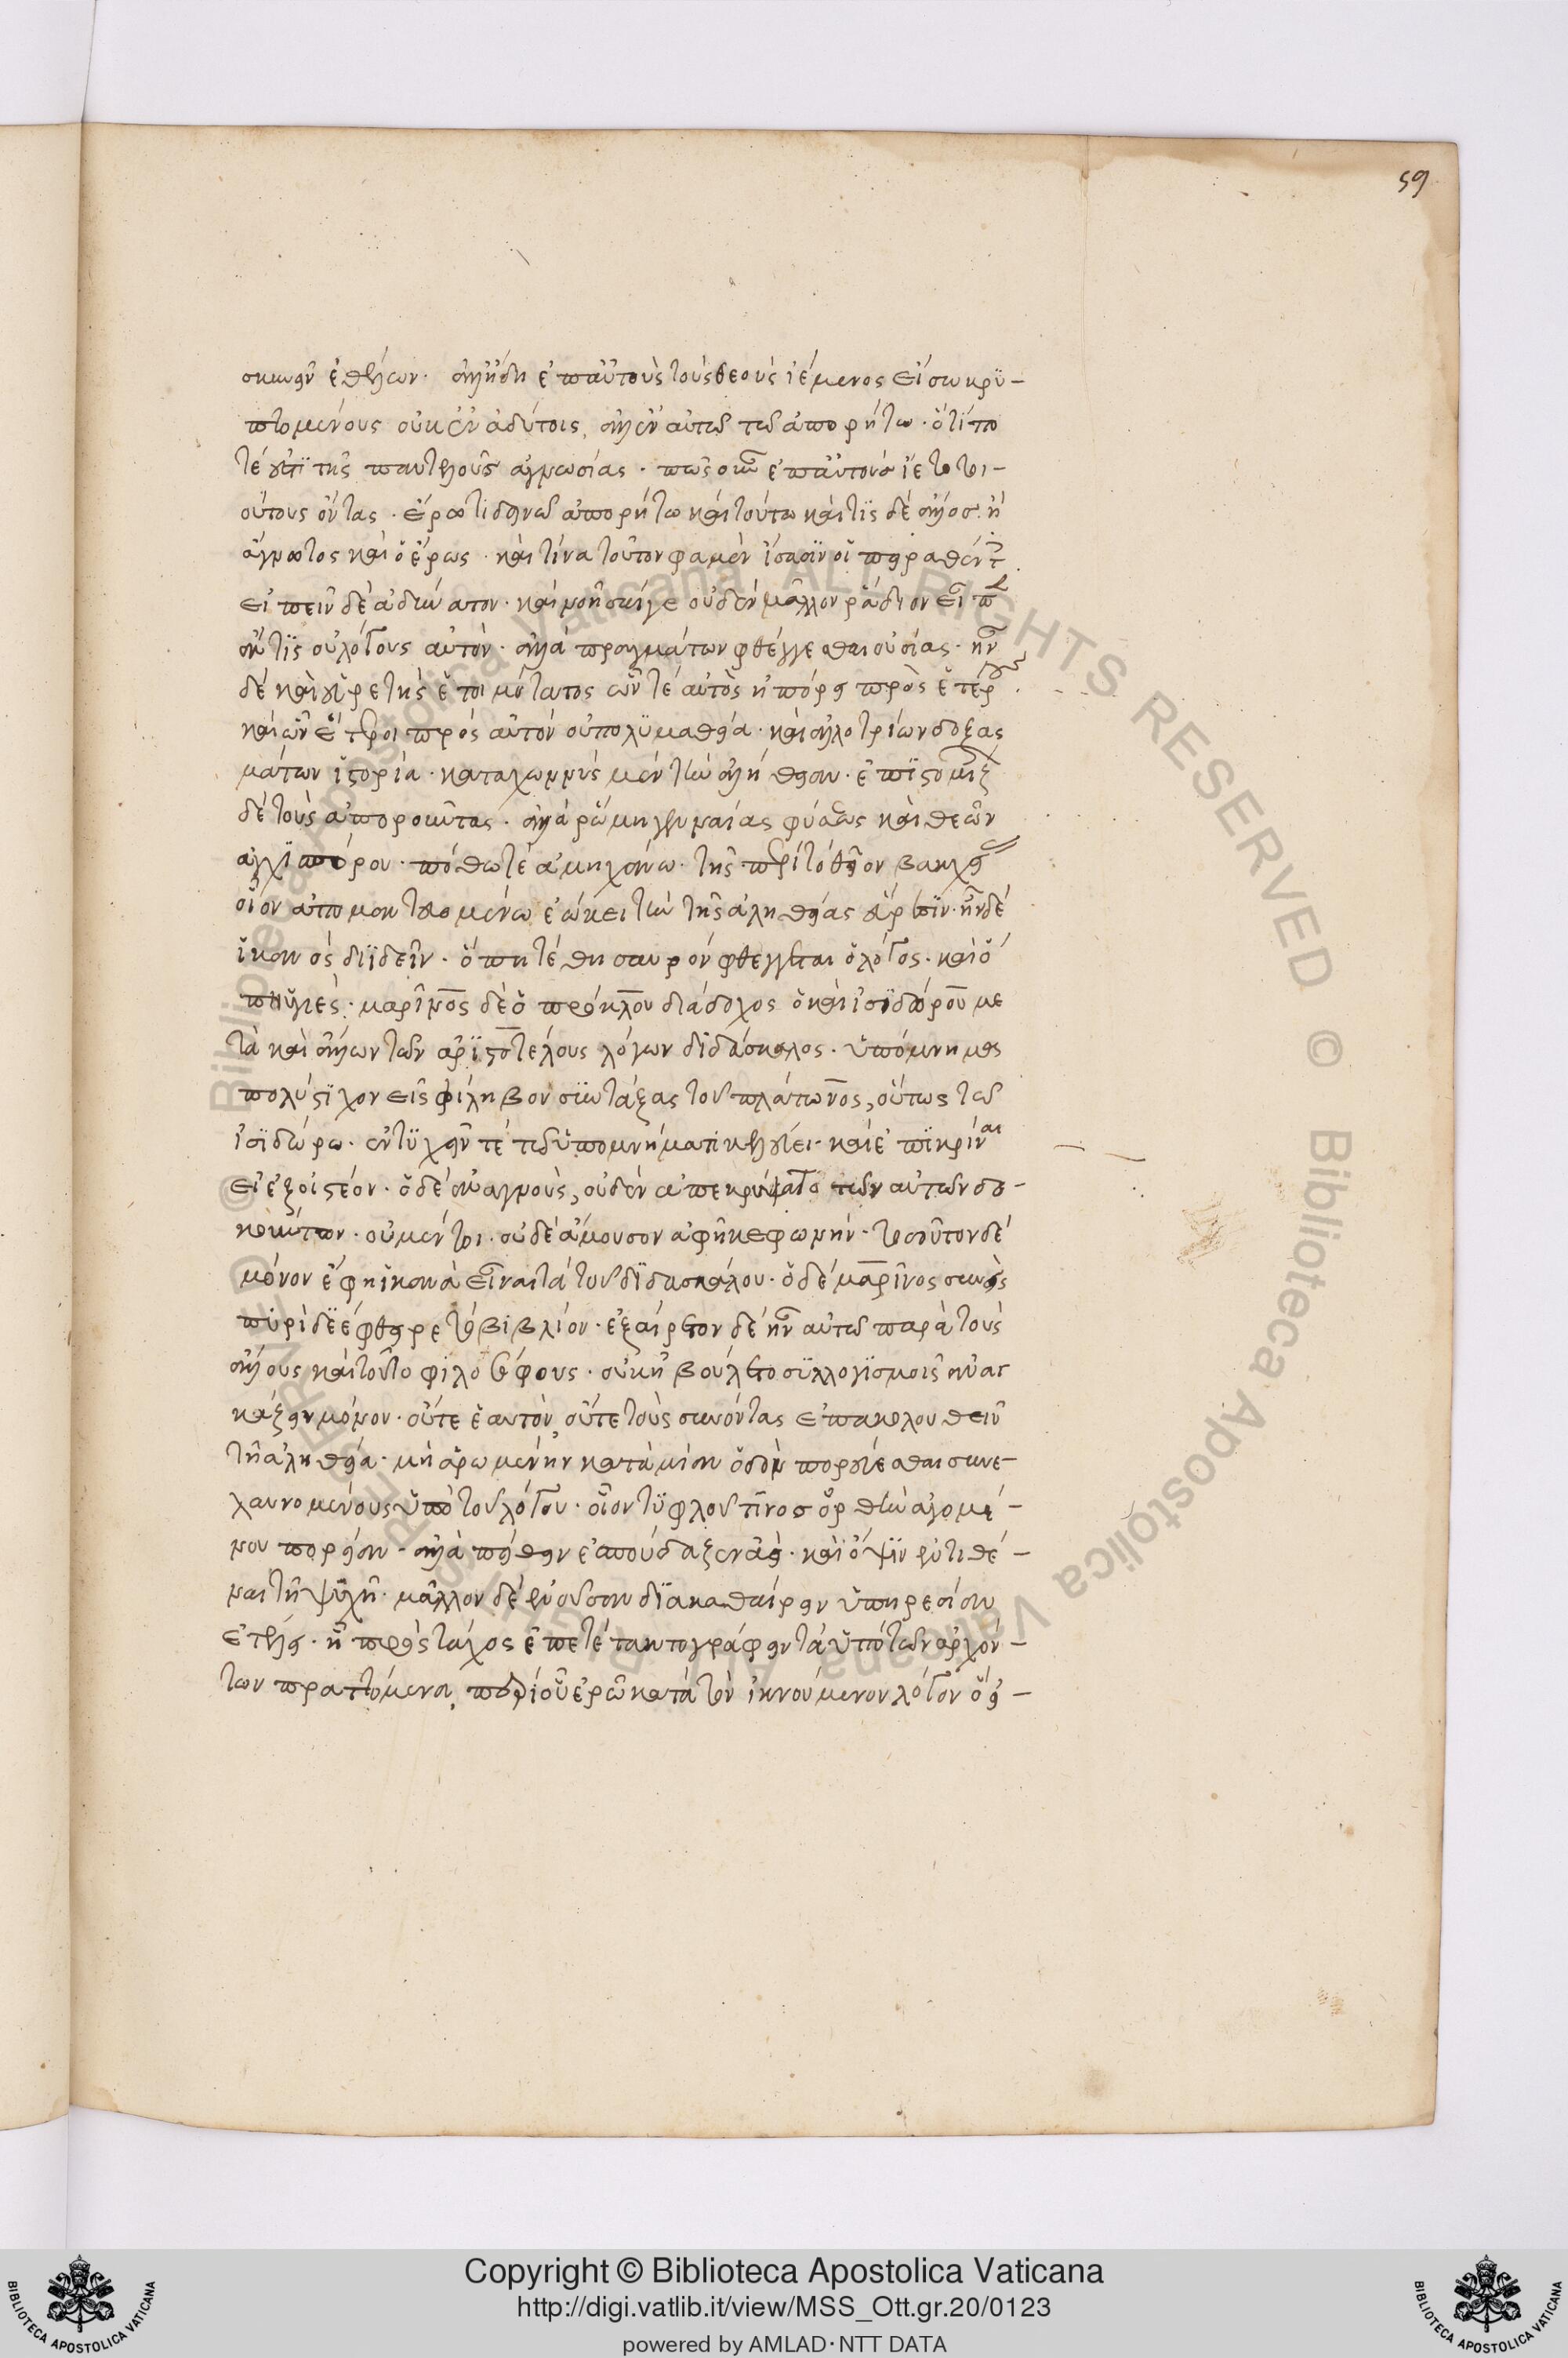 59
σκυνεῖν ἐθέλων. ἀλλ' ἤδη ἐπ' αὐτοὺς τοὺς θεοὺς ἱέμενος εἴσω κρυ-
πτομένους οὐκ ἐν ἀδύτοις, ἀλλ' ἐν αὐτῷ τῷ ἀπορρήτῳ. ὅτι πο
τέ ἐστι τῆς παντελοῦς ἀγνωσίας. πῶς οὖν ἐπ' αὐτοὺς ἵετο τοι-
ούτους ὄντας. ἔρωτι δεινῷ ἀπορρήτῳ καὶ τούτῳ καὶ τίς δὲ ἄλλος ἢ
ἄγνωστος καὶ ὁ ἔρως. καὶ τίνα τοῦτον φαμὲν ἴσασιν οἱ πειραθέντ
εἰπεῖν δὲ ἀδύνατον. καὶ νοῆσαι γε οὐδὲν μᾶλλον ῥᾴδιον
ἄν τις οὐ λόγους αὐτὸν. ἀλλὰ πραγμάτων φθέγγεσθαι οὐσίας. ἦν
δὲ καὶ εὑρετὴς ἑτοιμότατος ὧν τε αὐτὸς ἠπόρει πρὸς ἑτέρους.
καὶ ὧν ἕτεροι πρὸς αὐτὸν οὐ πολυμαθείᾳ. καὶ ἀλλοτρίων δοξασ
μάτων ἱστορίᾳ. καταχωννὺς μὲν τὴν ἀλήθειαν. ἐπιστομιζ
δὲ τοὺς ἀποροῦντας. ἀλλὰ ῥώμη γενναίας φύσεως καὶ θεῶν
ἀγχισπόρου. πόθῳ τε ἀμηχάνῳ. τῆς περὶ τὸ θεῖον βακχεί
οἷον ἀπομαντευομένῳ ἐῴκει τὴν τῆς ἀληθείας εὕρεσιν. ἦν δὲ
ἱκανὸς διιδεῖν. ὅπῃ τε θησαυρὸν φθέγγεται ὁ λόγος. καὶ ὁ
πῃ ὑγιές. μαρῖνος δὲ ὁ πρόκλου διάδοχος ὁ καὶ ἰσιδώρου με
τὰ καὶ ἄλλων τῶν ἀριστοτέλους λόγων διδάσκαλος. ὑπόμνημα
πολύστιχον εἰς φίληβον συντάξας τοῦ πλάτωνος, οὕτως τῷ
ἰσιδώρῳ. ἐντυχεῖν τὲ τῷ ὑπομνήματι κελεύει. καὶ ἐπικρίναι
εἰ ἐξοιστέον. ὁ δὲ ἀναγνοὺς, οὐδὲν ἀπεκρύψατο τῶν αὐτῷ δο-
κούντων. οὐ μέντοι. οὐδὲ ἄμουσον ἀφῆκε φωνήν. τοσοῦτον δὲ
μόνον ἔφη ἱκανὰ εἶναι τὰ τοῦ διδασκάλου. ὁ δὲ μαρῖνος συνεὶς
πυρὶ δὲ ἔφθειρε τὸ βιβλίον. ἐξαίρετον δὲ ἦν αὐτῷ παρὰ τοὺς
ἄλλους καὶ τοῦτο φιλοσόφους. οὐκ ἠβούλετο συλλογισμοῖς ἀναγ
κάζειν μόνον. οὔτε ἑαυτὸν, οὔτε τοὺς συνόντας ἐπακολουθεῖν
τῇ ἀληθείᾳ. μὴ ὁρωμένην κατὰ μίαν ὁδὸν πορεύεσθαι συνε-
λαυνομένους ὑπὸ τοῦ λόγου. οἷον τυφλοῦ τινος ὀρθὴν ἀγομέ-
νου πορείαν. ἀλλὰ πείθειν ἐσπούδαζεν ἀεὶ. καὶ ὄψιν ἐντιθέ-
ναι τῇ ψυχῇ. μᾶλλον δὲ ἐνοῦσαν διακαθαίρειν ὑπηρεσίαν
ἐτέλει. ἢ πρὸς τάχος ἐπετέτακτο γράφειν τὰ ὑπὸ τῶν ἀρχόν-
των πραττόμενα, ποδὶ οὖν ἐρῶ κατὰ τὸν ἱκνούμενον λόγον ὁ εἰ-
Copyright © Biblioteca Apostolica Vaticana
http://digi.vatlib.it/view/MSS_Ott.gr.20/0123
powered by AMLAD·NTT DATA